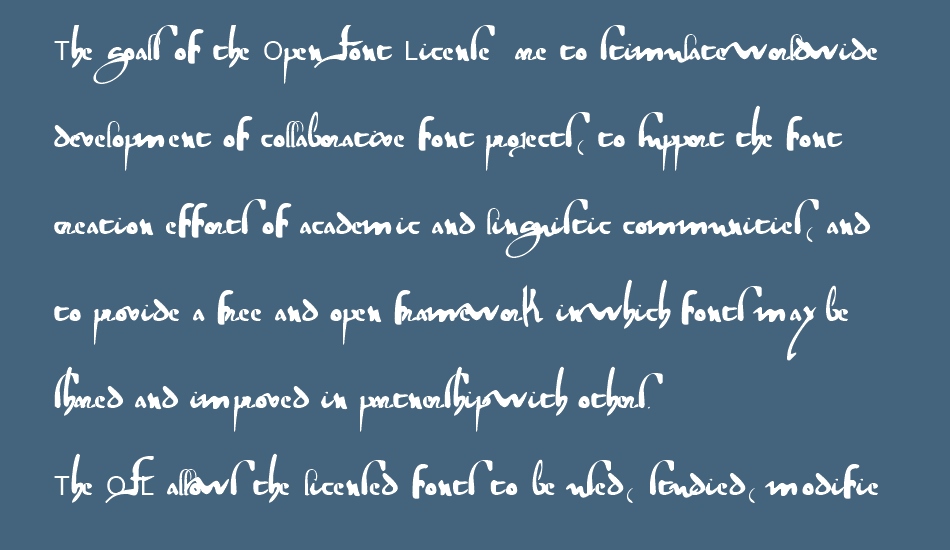 The goals of the Open Font License are to stimulate worldwide
development of collaborative font projects, to support the font
creation efforts of academic and linguistic communities, and
to provide a free and open framework in which fonts may be
shared and improved in partnership with others.
The OFL allows the licensed fonts to be used, studied, modifie